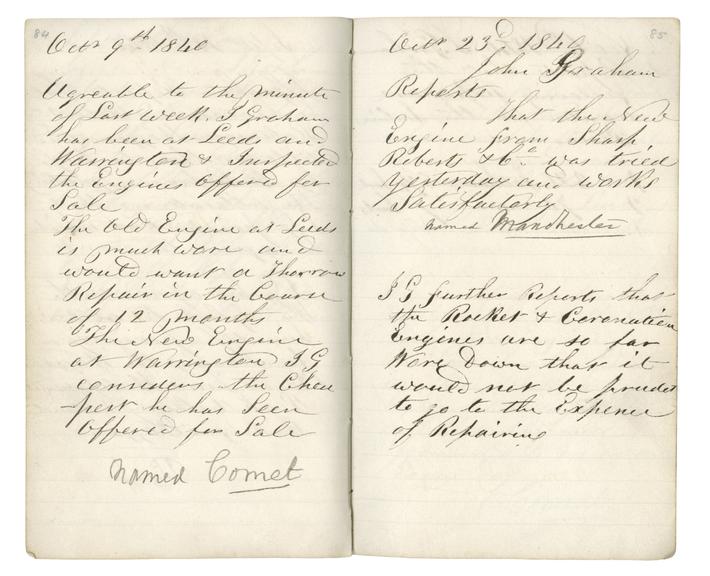 84
Octr 9th 1840
Agreable to the Minute
of Last Week. J Graham
has been at Leeds and
Warrington & Inspected
the Engines Offered for
Sale
The Old Engine at Leeds
is much wore and
would want a Thorrow
Repair in the Course
of 12 Months
The New Engine
at Warrington J G
considers the Chea
-pest he has Seen
Offered for Sale
named Comet
85
Octr 23d 1840
John Graham
Reports
That the New
Engine from Sharp
Roberts & Co was tried
yesterday and works
Satisfactorly
named Manchester
J G further Reports that
the Rocket & Coronation
Engines are so far
Wore Down that it
would not be prudet
to go to the Expence
of Repairing